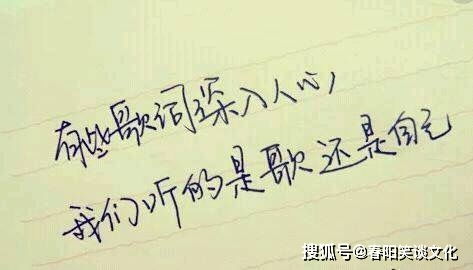 有些歌词深入人心，
我们听的是歌还是自己
搜狐号@春阳笑谈文化